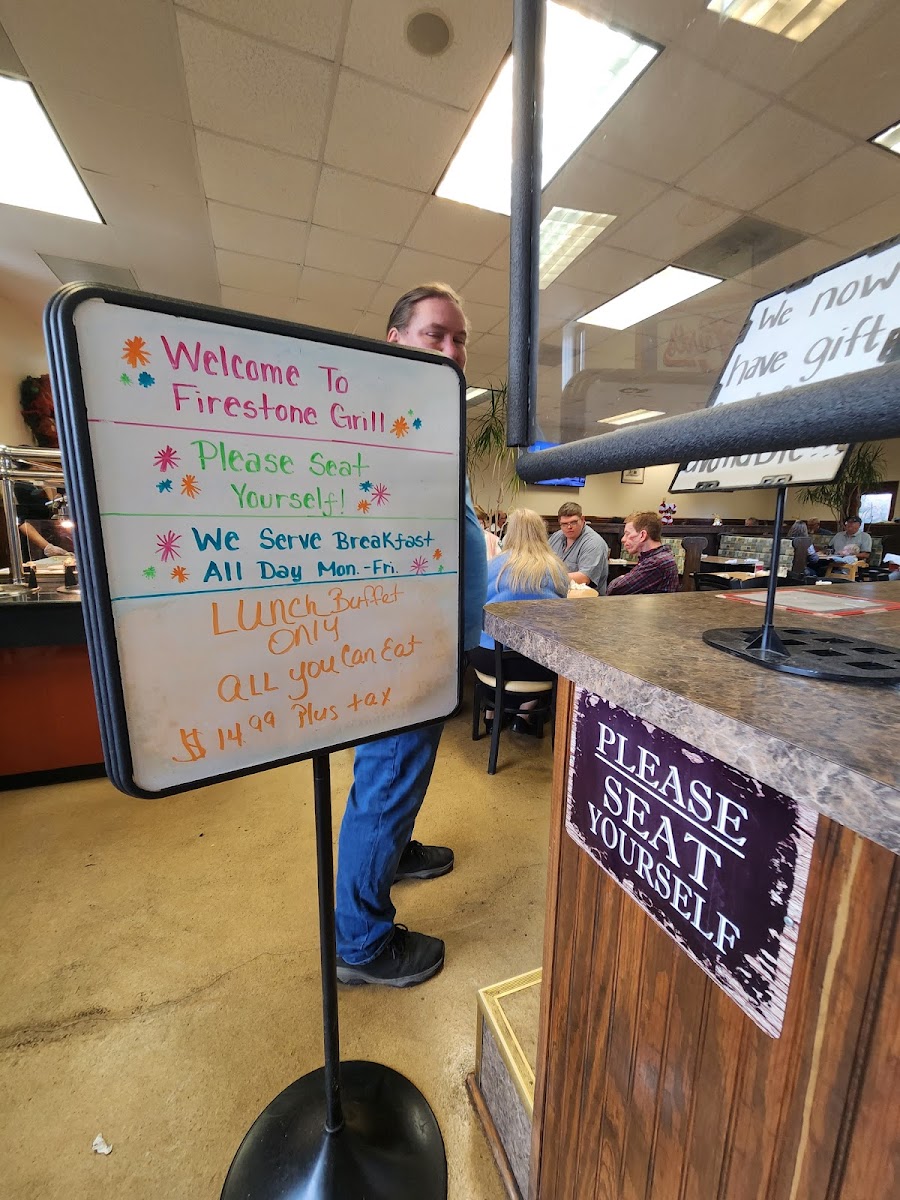 Welcome To
Firestone Grill
Please Seat
Yourself!
We Serve Breakfast
All Day Mon.-Fri.
Lunch Buffet
Only
all you can Eat
$ 14.99 Plus tax
We now
have gift
PLEASE
SEAT
YOURSELF